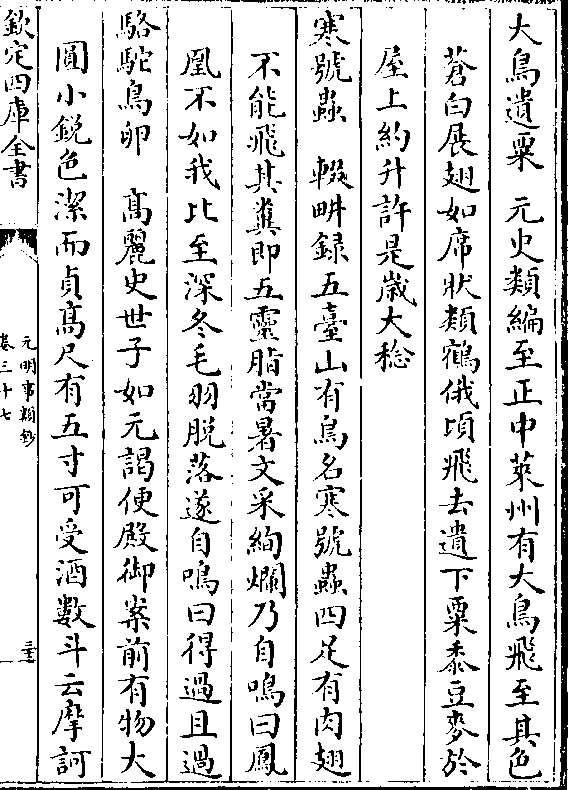 大鳥遺粟　元史類編至正中萊州有大鳥飛至其色
蒼白展翅如席狀類鶴俄頃飛去遺下粟黍豆麥於
屋上約升許是歲大稔
寒號蟲　輟畊録五臺山有鳥名寒號蟲四足有肉翅
不能飛其糞即五靈脂當暑文采絢爛乃自鳴曰鳳
凰不如我比至深冬毛羽脱落遂自鳴曰得過且過
駱駝鳥卵　髙麗史世子如元謁便殿御案前有物大
圓小鋭色潔而貞髙尺有五寸可受酒數斗云摩訶
欽定四庫全書
元明事類鈔
卷三十七